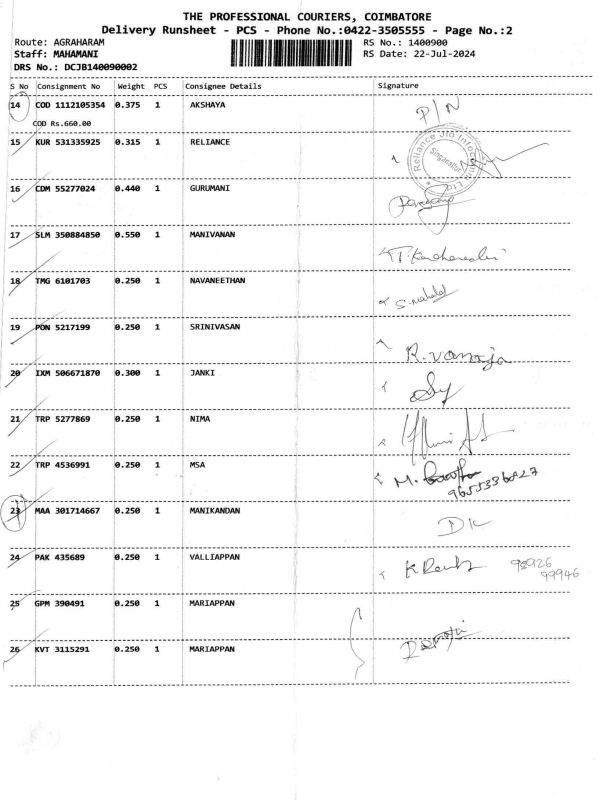 THE PROFESSIONAL COURIERS, COIMBATORE
Delivery Runsheet - PCS - Phone No.:0422-3505555 - Page No.:2
Route: AGRAHARAM RS No.: 1400900
Staff: MAHAMANI RS Date: 22-Jul-2024
DRS No.: DCJB140090002
S No Consignment No Weight PCS Consignee Details Signature
14 COD 1112105354 0.375 1 AKSHAYA P/N
COD Rs.660.00
15 KUR 531335925 0.315 1 RELIANCE
Reliance Jio Infocomm Ltd
Singanallur
16 CDM 55277024 0.440 1 GURUMANI
17 SLM 350884850 0.550 1 MANIVANAN
18 TMG 6101703 0.250 1 NAVANEETHAN
19 PON 5217199 0.250 1 SRINIVASAN R.vanaja
20 IXM 506671870 0.300 1 JANKI
21 TRP 5277869 0.250 1 NIMA
22 TRP 4536991 0.250 1 MSA M.
23 MAA 301714667 0.250 1 MANIKANDAN
24 PAK 435689 0.250 1 VALLIAPPAN 99946
25 GPM 390491 0.250 1 MARIAPPAN
26 KVT 3115291 0.250 1 MARIAPPAN